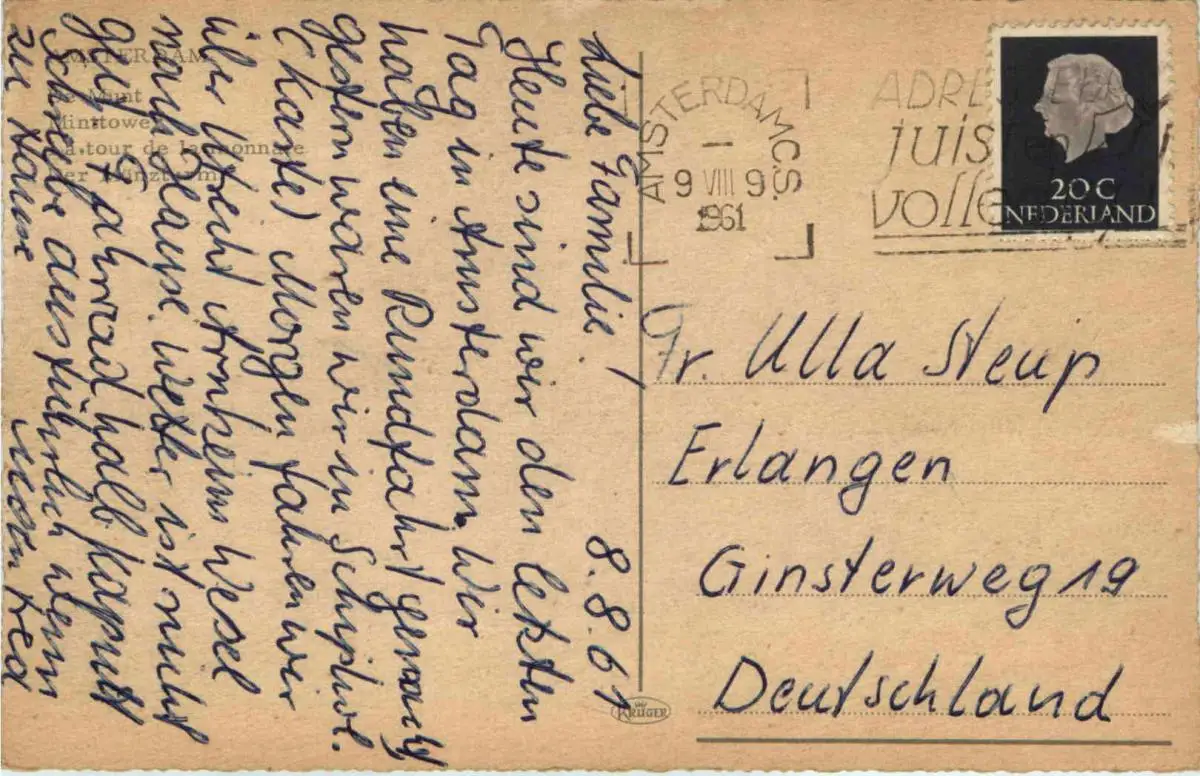 AMSTERDAM
De Munt
Minttower
La tour de la monnaie
Der Münzturm
Liebe Familie! 8.8.61
Heute sind wir den letzten
Tag in Amsterdam. Wir
haben eine Rundfahrt gemacht
gestern waren wir in Schiphol.
(Karte) Morgen fahren wir
über Utrecht Arnheim Wesel
nach Hause. Wetter ist nicht
gut, Fahrrad halb kaputt
Schreibe ausführlich wenn
zu Hause
AMSTERDAM C.S.
9 VIII 9
1961
ADRE
juist
volle
20 C
NEDERLAND
Fr. Ulla Steup
Erlangen
Ginsterweg 19
Deutschland
KRÜGER